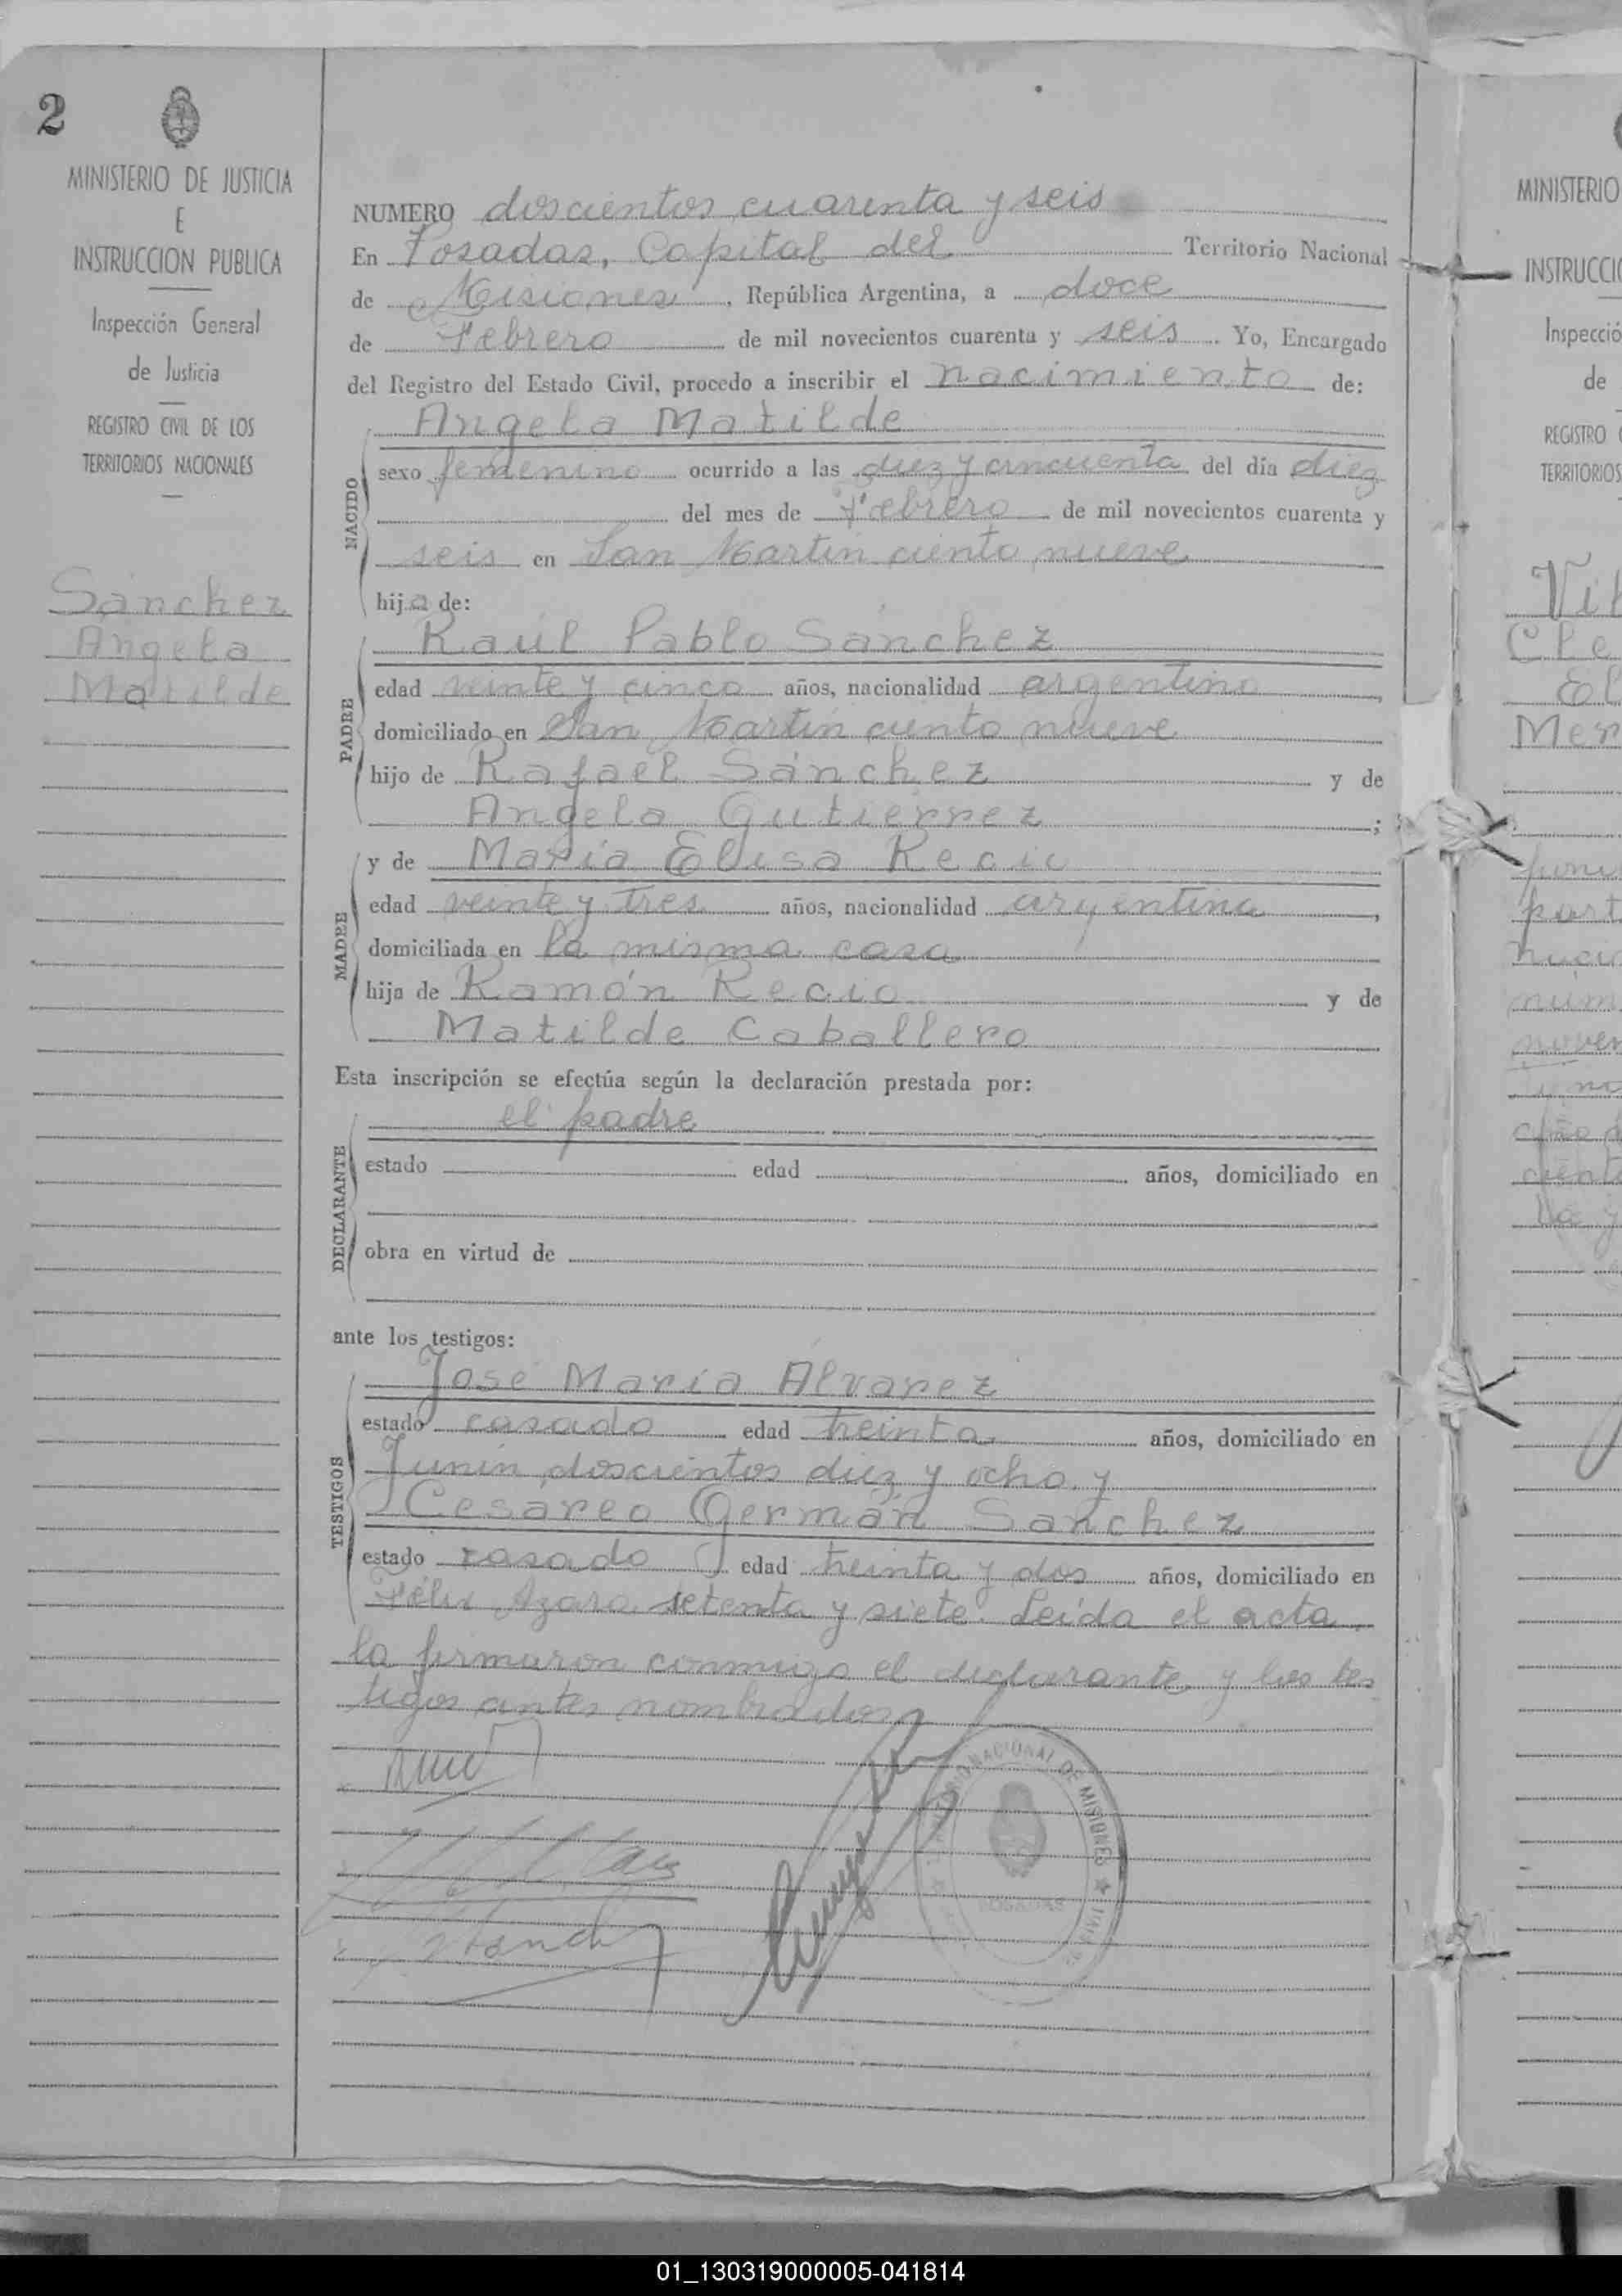 2
MINISTERIO DE JUSTICIA
E
INSTRUCCION PUBLICA
Inspección General
de Justicia
REGISTRO CIVIL DE LOS
TERRITORIOS NACIONALES
Sánchez
Angela
Matilde
NUMERO doscientos cuarenta y seis
En Posadas, Capital del Territorio Nacional
de Misiones, República Argentina, a doce
de Febrero de mil novecientos cuarenta y seis. Yo, Encargado
del Registro del Estado Civil, procedo a inscribir el nacimiento de:
NACIDO
Angela Matilde
sexo femenino ocurrido a las diez y cincuenta del día diez
del mes de Febrero de mil novecientos cuarenta y
seis en San Martín ciento nueve
hija de:
PADRE
Raúl Pablo Sánchez
edad veinte y cinco años, nacionalidad argentino,
domiciliado en San Martín ciento nueve
hijo de Rafael Sánchez y de
Angela Gutierrez;
MADRE
y de María Elisa Recio
edad veinte y tres años, nacionalidad argentina,
domiciliada en la misma casa
hija de Ramón Recio y de
Matilde Caballero
Esta inscripción se efectúa según la declaración prestada por:
DECLARANTE
el padre
estado edad años, domiciliado en
obra en virtud de
ante los testigos:
TESTIGOS
José María Alvarez
estado casado edad treinta años, domiciliado en
Junín doscientos diez y ocho y
Cesáreo Germán Sánchez
estado casado edad treinta y dos años, domiciliado en
Félix Azara setenta y siete. Leída el acta
la firmaron conmigo el declarante y los tes
tigos antes nombrados
NACIONAL DE MISIONES
POSADAS
MINISTERIO
INSTRUCCI
Inspecció
de
REGISTRO
TERRITORIOS
Vil
Cle
El
Mer
01_130319000005-041814